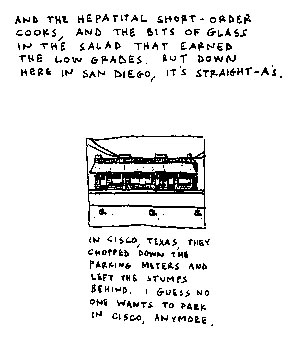 AND THE HEPATITAL SHORT-ORDER
COOKS, AND THE BITS OF GLASS
IN THE SALAD THAT EARNED
THE LOW GRADES. BUT DOWN
HERE IN SAN DIEGO, IT'S STRAIGHT-A'S.
IN CISCO, TEXAS, THEY
CHOPPED DOWN THE
PARKING METERS AND
LEFT THE STUMPS
BEHIND. I GUESS NO
ONE WANTS TO PARK
IN CISCO, ANYMORE.